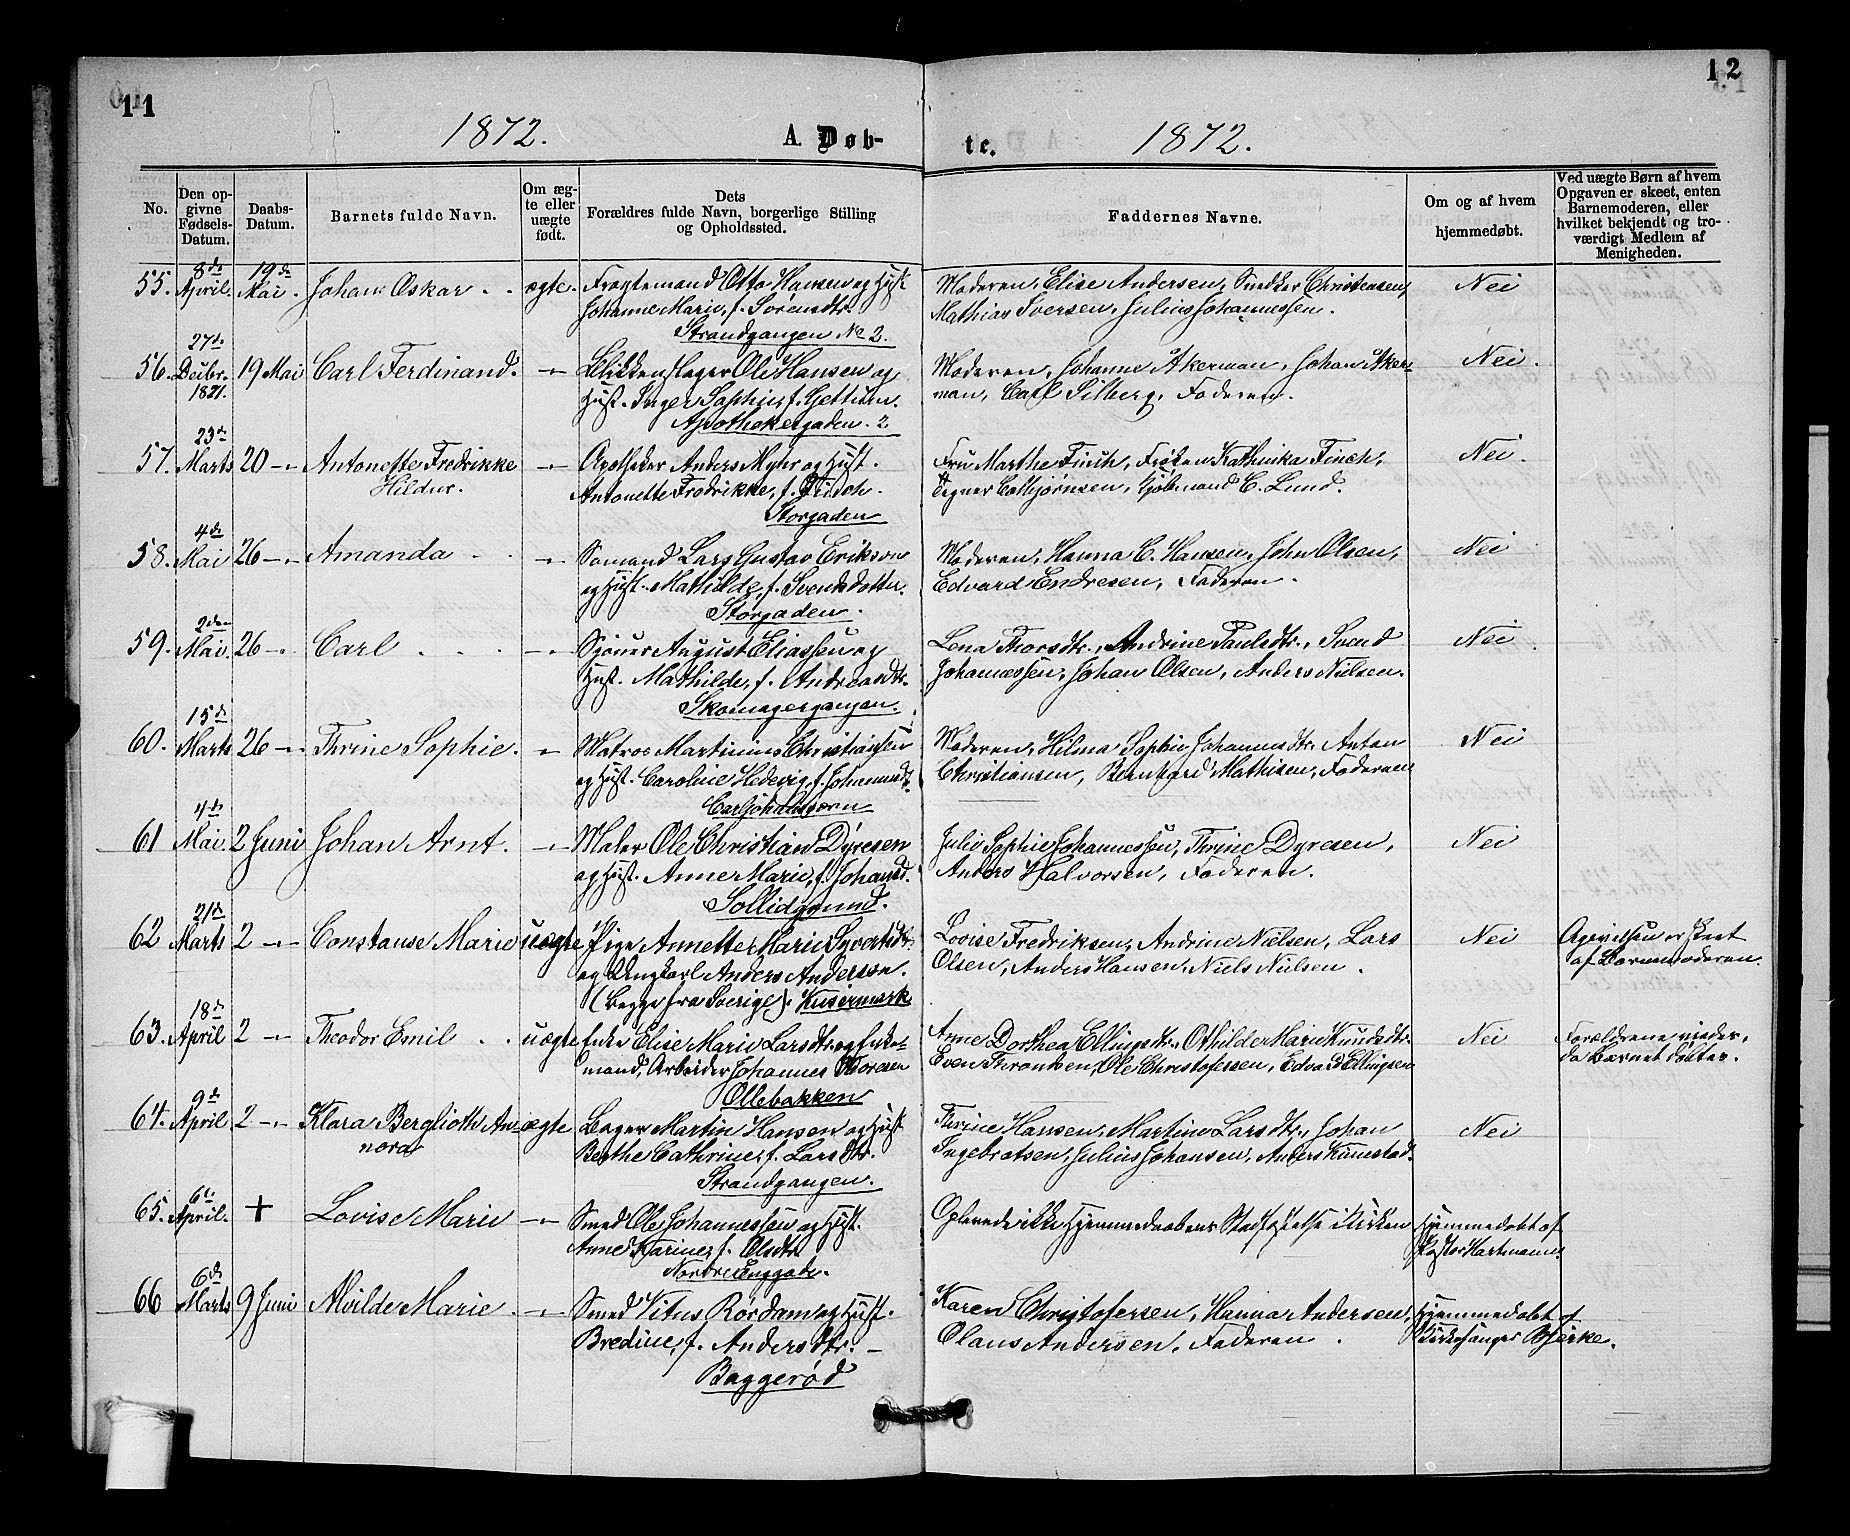 11
12
1872.
A. Døb-
te.
1872.
No.
Den op-
givne
Fødsels-
Datum.
Daabs-
Datum.
Barnets fulde Navn.
Om æg-
te eller
uægte
født.
Dets
Forældres fulde Navn, borgerlige Stilling
og Opholdssted.
Faddernes Navne.
Om og af hvem
hjemmedøbt.
Ved uægte Børn af hvem
Opgaven er skeet, enten
Barnemoderen, eller
hvilket bekjendt og tro-
værdigt Medlem af
Menigheden.
55. 8de April. 19de Mai. Johan Oskar. ægte. Fragtemand Otto Hansen og Hust.
Johanne Marie, f. Sørensdtr.
Strandgangen No 2.
Moderen, Elise Andersen, Snedker Christensen,
Mathias Iversen, Julius Johannessen.
Nei
56. 27de Decbr. 1871. 19 Mai Carl Ferdinand. -"- Blikkenslager Ole Hansen og
Hust. Inger Sophie, f. Gettum.
Apothekergaden. 2
Moderen, Johanne Akerman, Johan Aker-
man, Carl Silberg, Faderen.
Nei.
57. 23de Marts 20 -"- Antonette Fredrikke
Hildur.
-"- Apotheker Anders Myhr og Hust.
Antonette Fredrikke, f. Finch.
Storgaden
Fru Marthe Finch, Frøken Kathinka Finch,
Kjøbmand C. Lund.
Nei.
58. 4de Mai 26 -"- Amanda -"- Sømand Lars Gustav Erikson
og Hust. Mathilde, f. Svendsdotter.
Storgaden.
Moderen, Hanna C. Hansen, John Olsen,
Edvard Endresen, Faderen.
Nei
59. 2den Mai. 26 -"- Carl -"- Sjouer August Eliassen og
Hust. Mathilde, f. Andreasdtr.
Skomagergangen.
Lena Thorsdtr., Andrine Paulsdtr., Svend
Johannessen, Johan Olsen, Anders Nielsen.
Nei
60. 15de Marts 26 -"- Thrine Sophie. -"- Matros Martinius Christiansen
og Hust. Caroline Hedevig, f. Johannesdtr.
Carljohansværn
Moderen, Hilma Sophie Johannesdtr. Anton
Christiansen, Bernhard Mathisen, Faderen
Nei
61 4de Mai. 2 Juni Johan Arnt. -"- Maler Ole Christian Dyresen
og Hust. Anne Marie, f. Johansd.
Sollidgrund.
Julie Sophie Johannessen, Thrine Dyresen,
Anders Halvorsen, Faderen.
Nei
62 21de Marts 2 -"- Constanse Marie uægte Pige Annette Marie Syvertsdtr.
og Ungkarl Anders Andersson.
(Begge fra Sverige). Kusermark
Lovise Fredriksen, Andrine Nielsen, Lars
Olsen, Anders Hansen, Niels Nielsen.
Nei
Opgivelsen er skeet
af Barnemoderen.
63. 18de April 2 -"- Theodor Emil uægte Enke Elise Marie Larsdtr. og Enke-
mand, Arbeider Johannes Thoresen
Ollebakken
Anne Dorthea Ellingsdtr., Othilde Marie Knudsdtr.
Even Throndsen, Ole Christofersen, Edvard Ellingsen
Nei
Forældrene viedes,
da Barnet døbtes.
64. 9de April 2 -"- Klara Berglioth An-
nora
ægte Bager Martin Hansen og Hust
Berthe Cathrine, f. Larsdtr.
Strandgangen.
Thrine Hansen, Martine Larsdtr., Johan
Ingebretsen, Julius Johansen, Anders Kunnestad.
Nei
65. 6te April. + Lovise Marie -"- Smed Ole Johannessen og Hust.
Anne Karine, f. Olsdtr.
Nordre Enggade.
Oplevede ikke Hjemmedaabens Stadfæstelse i Kirken
Hjemmedøbt af
Pastor Hartmann.
66 6de Marts 9 Juni Alvilde Marie. -"- Smed Vitus Rørdam og Hust.
Bredine, f. Andersdtr. -
Baggerød
Karen Christofersen, Hanna Andersen,
Olaus Andersen, Faderen.
Hjemmedøbt af
Kirkesanger Bjerke.